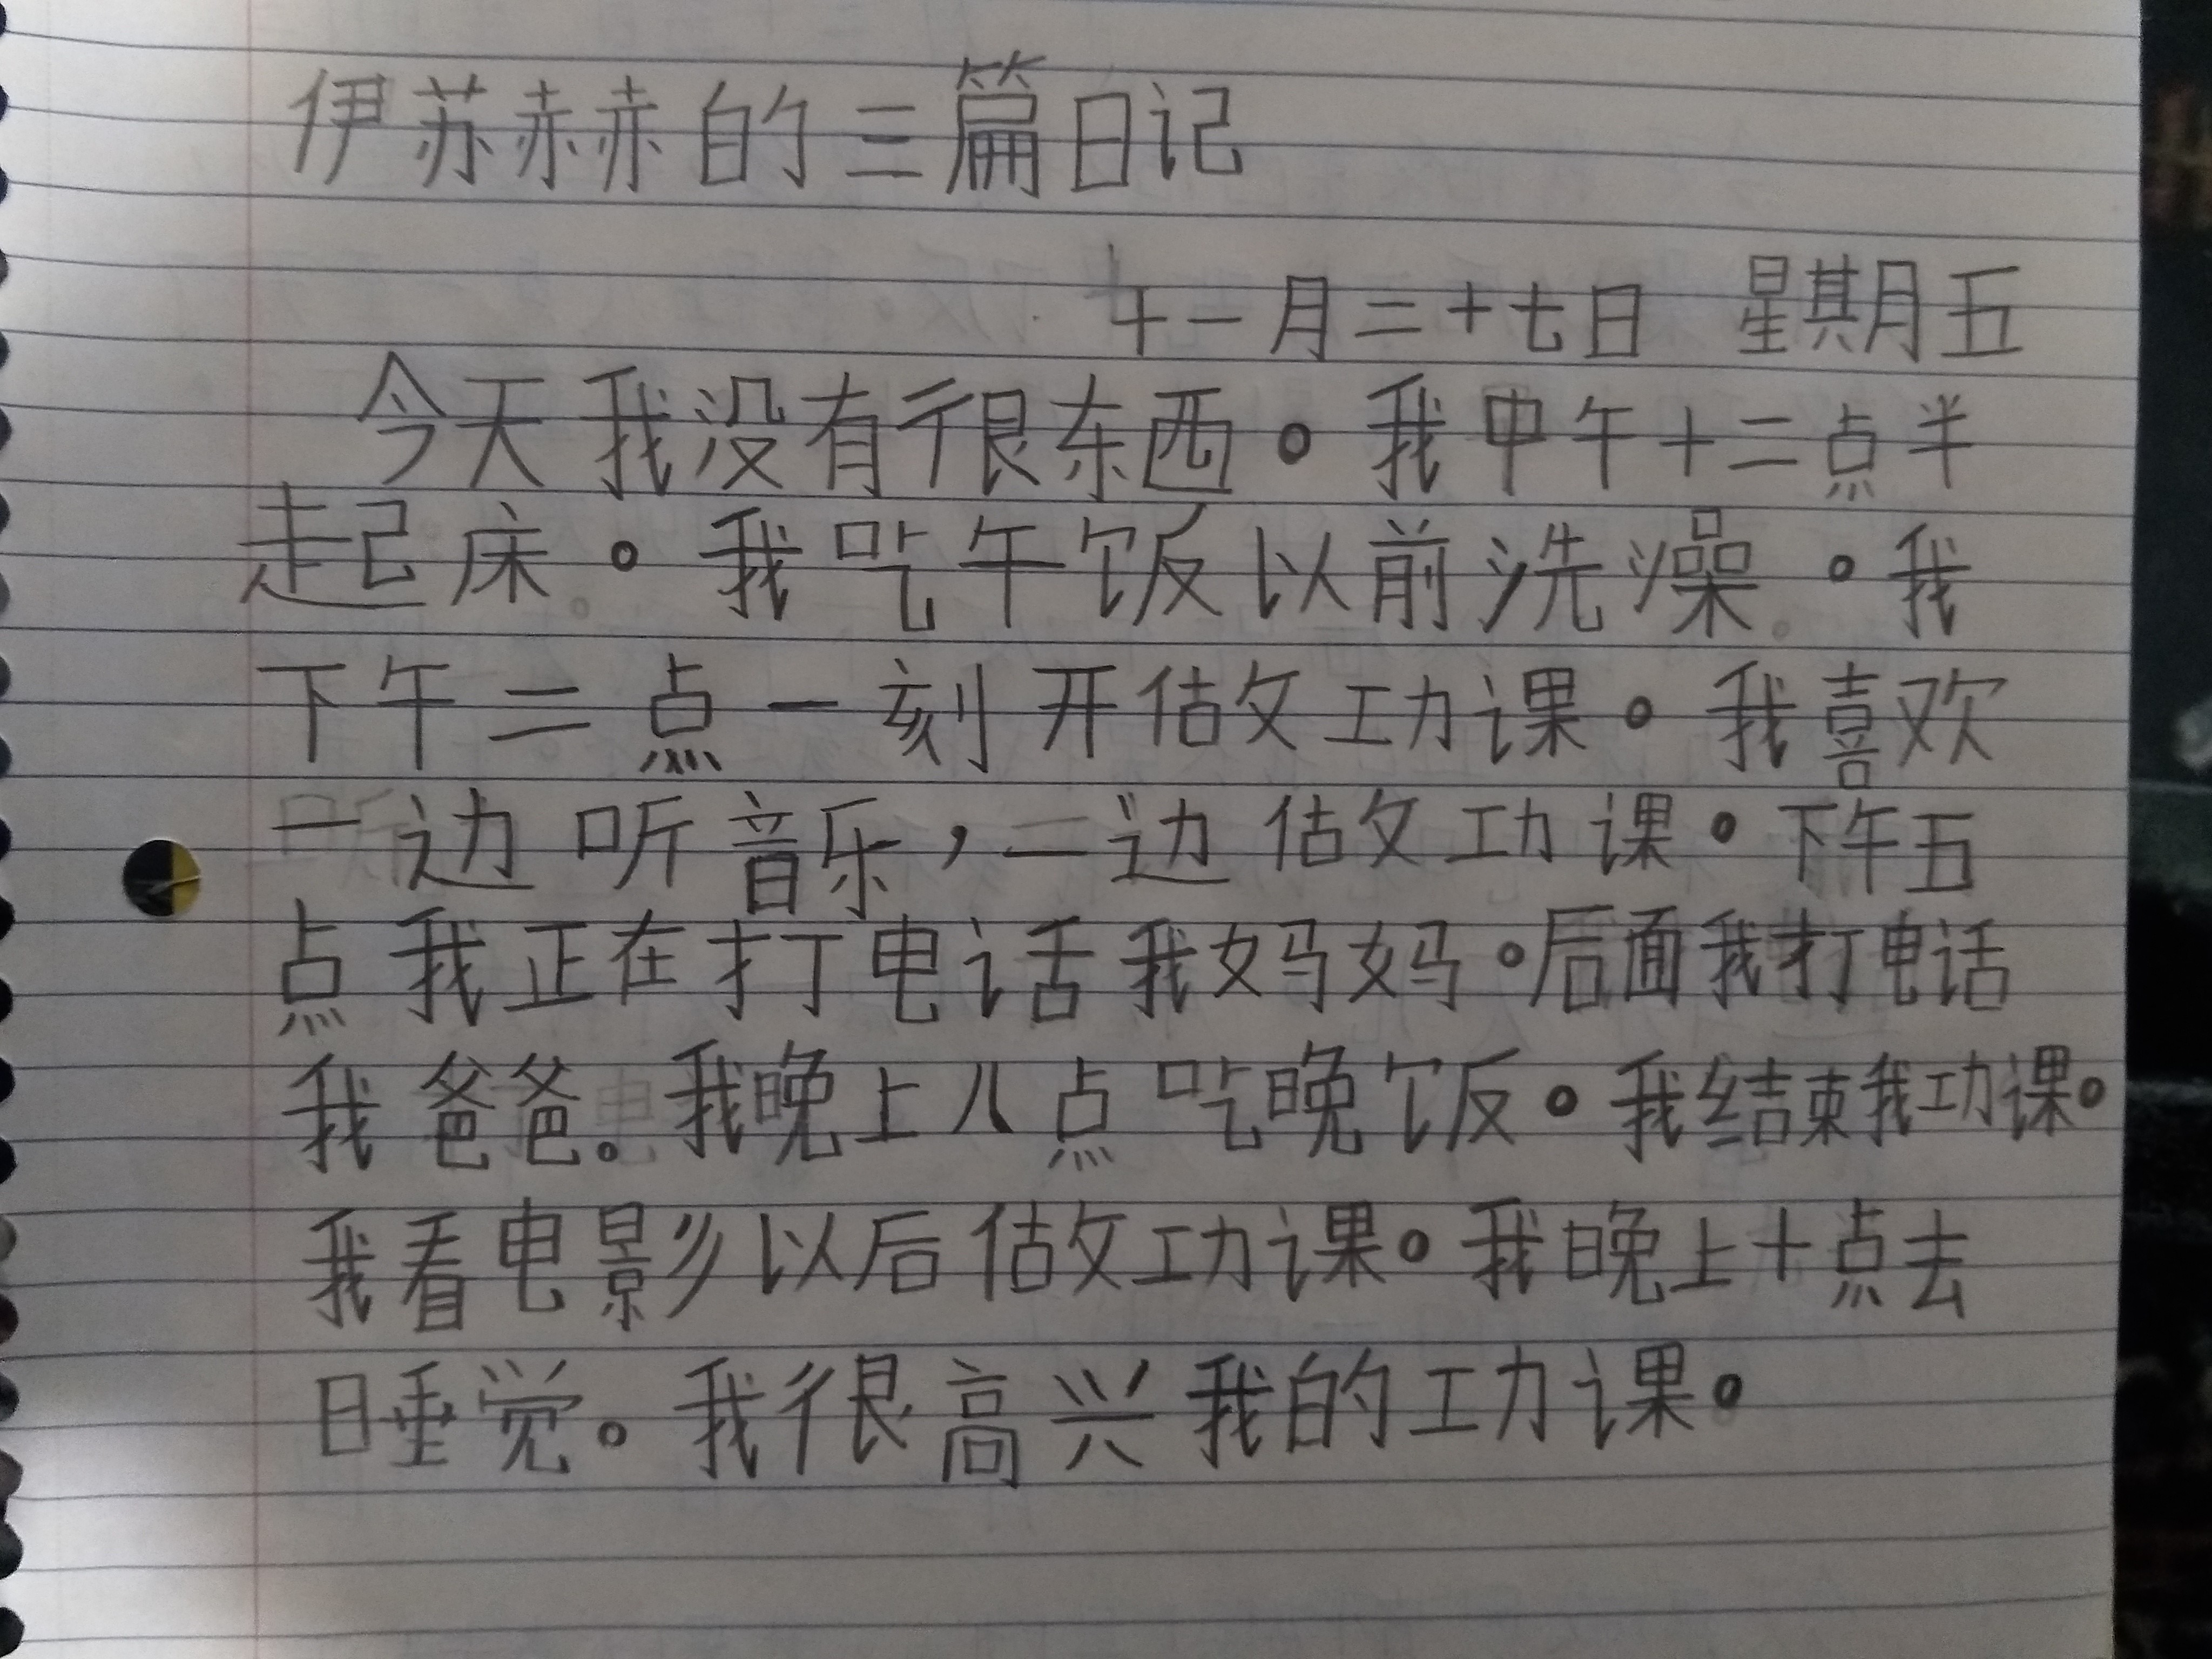 伊苏赫的三篇日记
十一月二十七日 星期五
今天我没有很东西。我中午十二点半
起床。我吃午饭以前洗澡。我
下午二点一刻开做功课。我喜欢
一边听音乐，一边做功课。下午五
点我正在打电话我妈妈。后面我打电话
我爸爸。我晚上八点吃晚饭。我结束我功课。
我看电影以后做功课。我晚上十点去
睡觉。我很高兴我的功课。